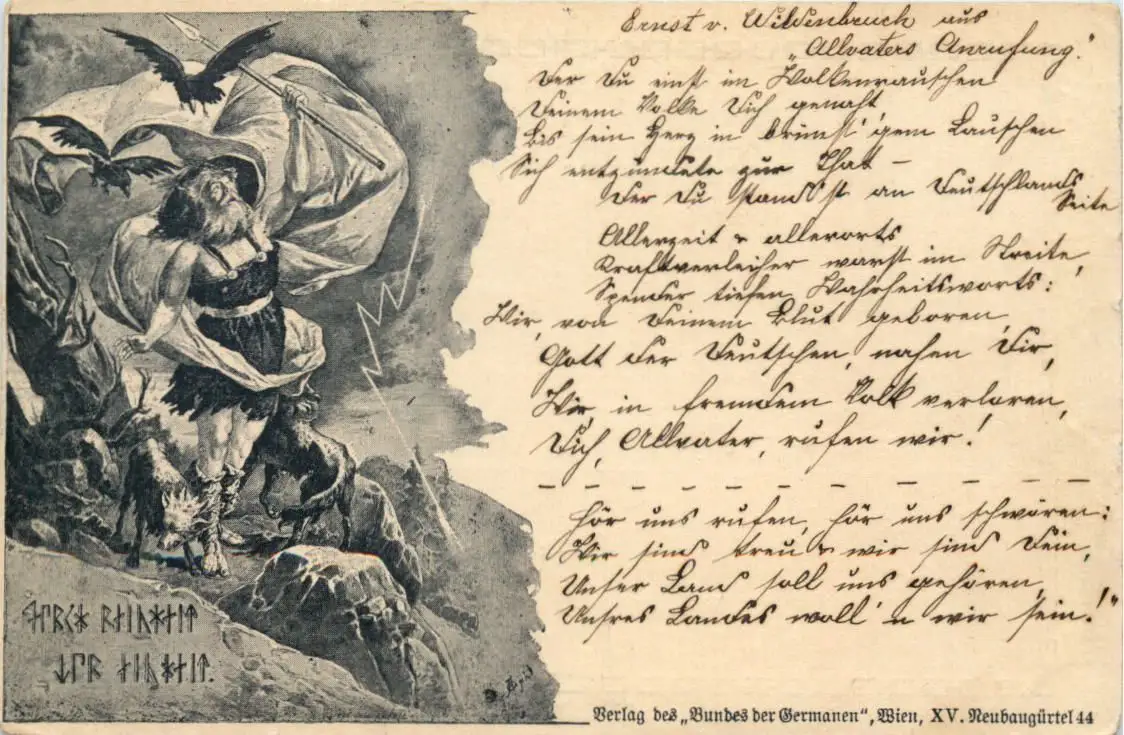 Ernst v. Wildenbruch aus
„Allvaters Anrufung."
Der Du einst im Wolkenrauschen
Deinem Volke Dich genaht,
Bis sein Herz in brünst'gem Lauschen
Sich entzündete zur That –
Der Du stand'st an Deutschlands Seite
Allerzeit & allerorts
Kraftverleiher warst im Streite,
Spender tiefen Wahrheitsworts:
Wir, von Deinem Blut geboren,
Gott der Deutschen, nahen Dir,
Wir in fremdem Volk verloren,
Dich, Allvater, rufen wir!
Hör uns rufen, hör uns schwören:
Wir sind treu & wir sind Dein,
Unser Land soll uns gehören,
Unsres Landes woll'n wir sein!"
Verlag des „Bundes der Germanen", Wien, XV. Neubaugürtel 44